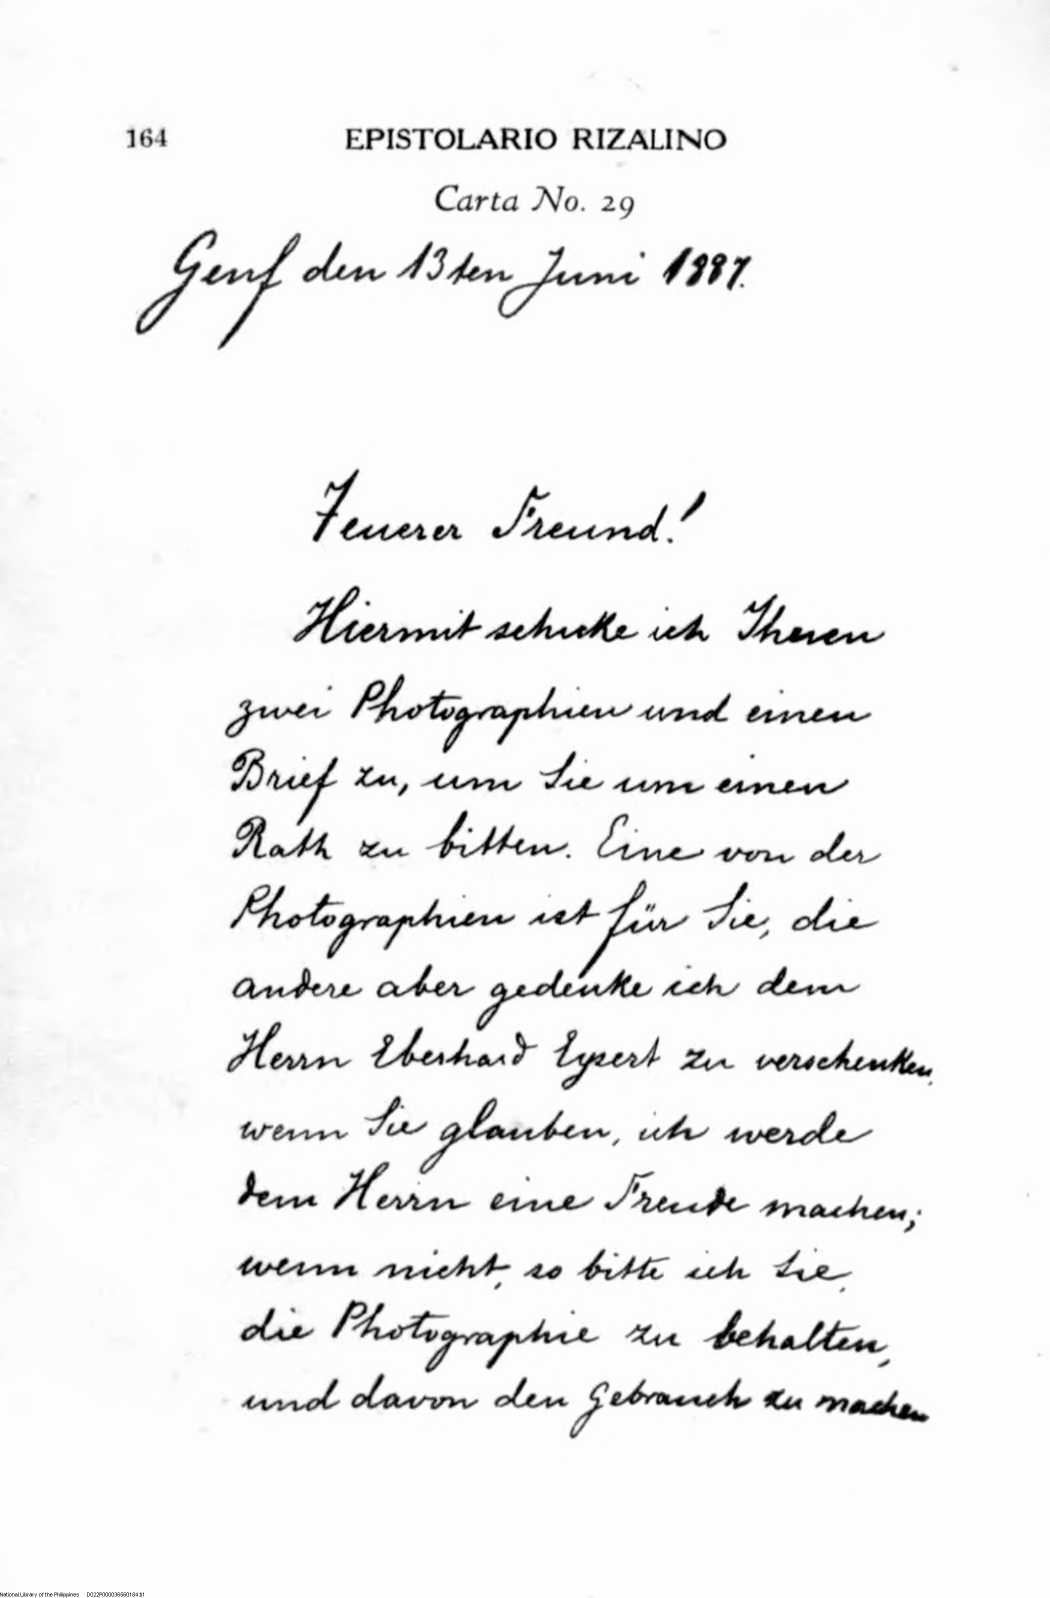 164 EPISTOLARIO RIZALINO
Carta No. 29
Genf den 13ten Juni 1887.
Teuerer Freund!
Hiermit schicke ich Ihenen
zwei Photographien und einen
Brief zu, um Sie um einen
Rath zu bitten. Eine von der
Photographien ist für Sie, die
andere aber gedenke ich dem
Herrn Eberhard Eysert zu verschenken,
wenn Sie glauben, ich werde
dem Herrn eine Freude machen;
wenn nicht, so bitte ich Sie,
die Photographie zu behalten,
und davon den Gebrauch zu machen
National Library of the Philippines